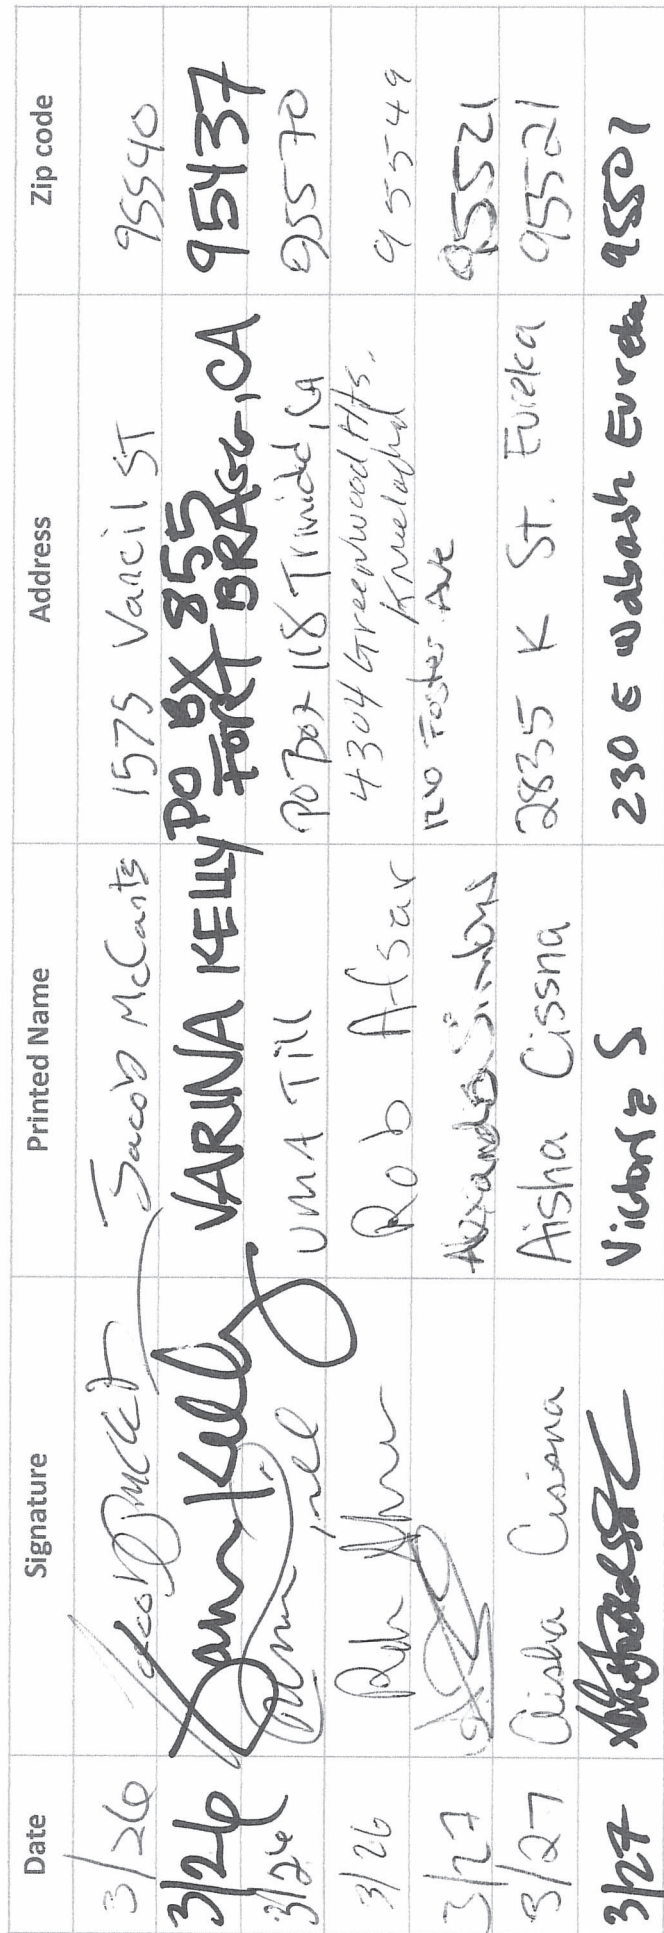 Date Signature Printed Name Address Zip code
3/26 Jacob McCants 1575 Vancil ST 95540
3/26 VARINA KELLY PO BX 855 95437
FORT BRAGG, CA
3/26 UMA Till PO Box 118 Trinidad, CA 95570
3/26 Rob Afsar 4304 Greenwood Hts. 95549
Kneeland
3/27 Alexandra Simons 1210 Foster Ave 95521
3/27 Aisha Cissna Aisha Cissna 2835 K St. Eureka 95521
3/27 Victoria S 230 E Wabash Eureka 95501